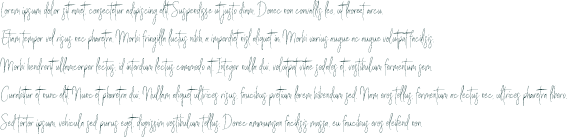 Lorem ipsum dolor sit amet, consectetur adipiscing elit. Suspendisse at justo diam. Donec non convallis leo, ut laoreet arcu.
Etiam tempor vel risus nec pharetra. Morbi fringilla luctus nibh, a imperdiet nisl aliquet in. Morbi varius augue ac augue volutpat facilisis.
Morbi hendrerit ullamcorper lectus, id interdum lectus commodo at. Integer nulla dui, volutpat vitae sodales et, vestibulum fermentum sem.
Curabitur et nunc elit. Nunc et pharetra dui. Nullam aliquet ultrices risus, faucibus pretium lorem bibendum sed. Nam eros tellus, fermentum ac lectus nec, ultrices pharetra libero.
Sed tortor ipsum, vehicula sed purus eget, dignissim vestibulum tellus. Donec accumsan facilisis massa, eu faucibus eros eleifend non.